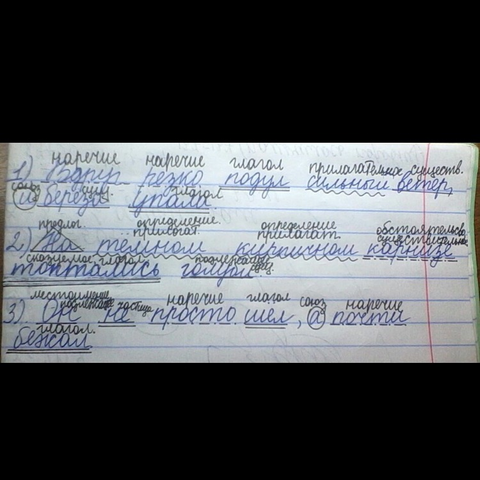 наречие наречие глагол прилагательное существ.
1) Вдруг резко подул сильный ветер,
союз сущ. глагол
и береза упала.
предлог. определение прилагат. определение прилагат. обстоятельство существительное
2) На темном кирпичном карнизе
сказуемое глагол подлежащее сущ.
топтались голуби
местоимение подлежащее частица наречие глагол союз наречие
3) Он не просто шел, а почти
глагол.
бежал